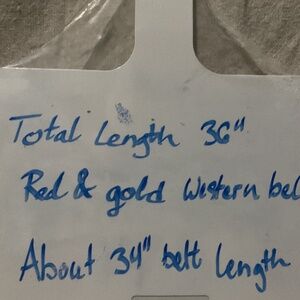 Total Length 36"
Red & gold Western bel
About 34" belt length